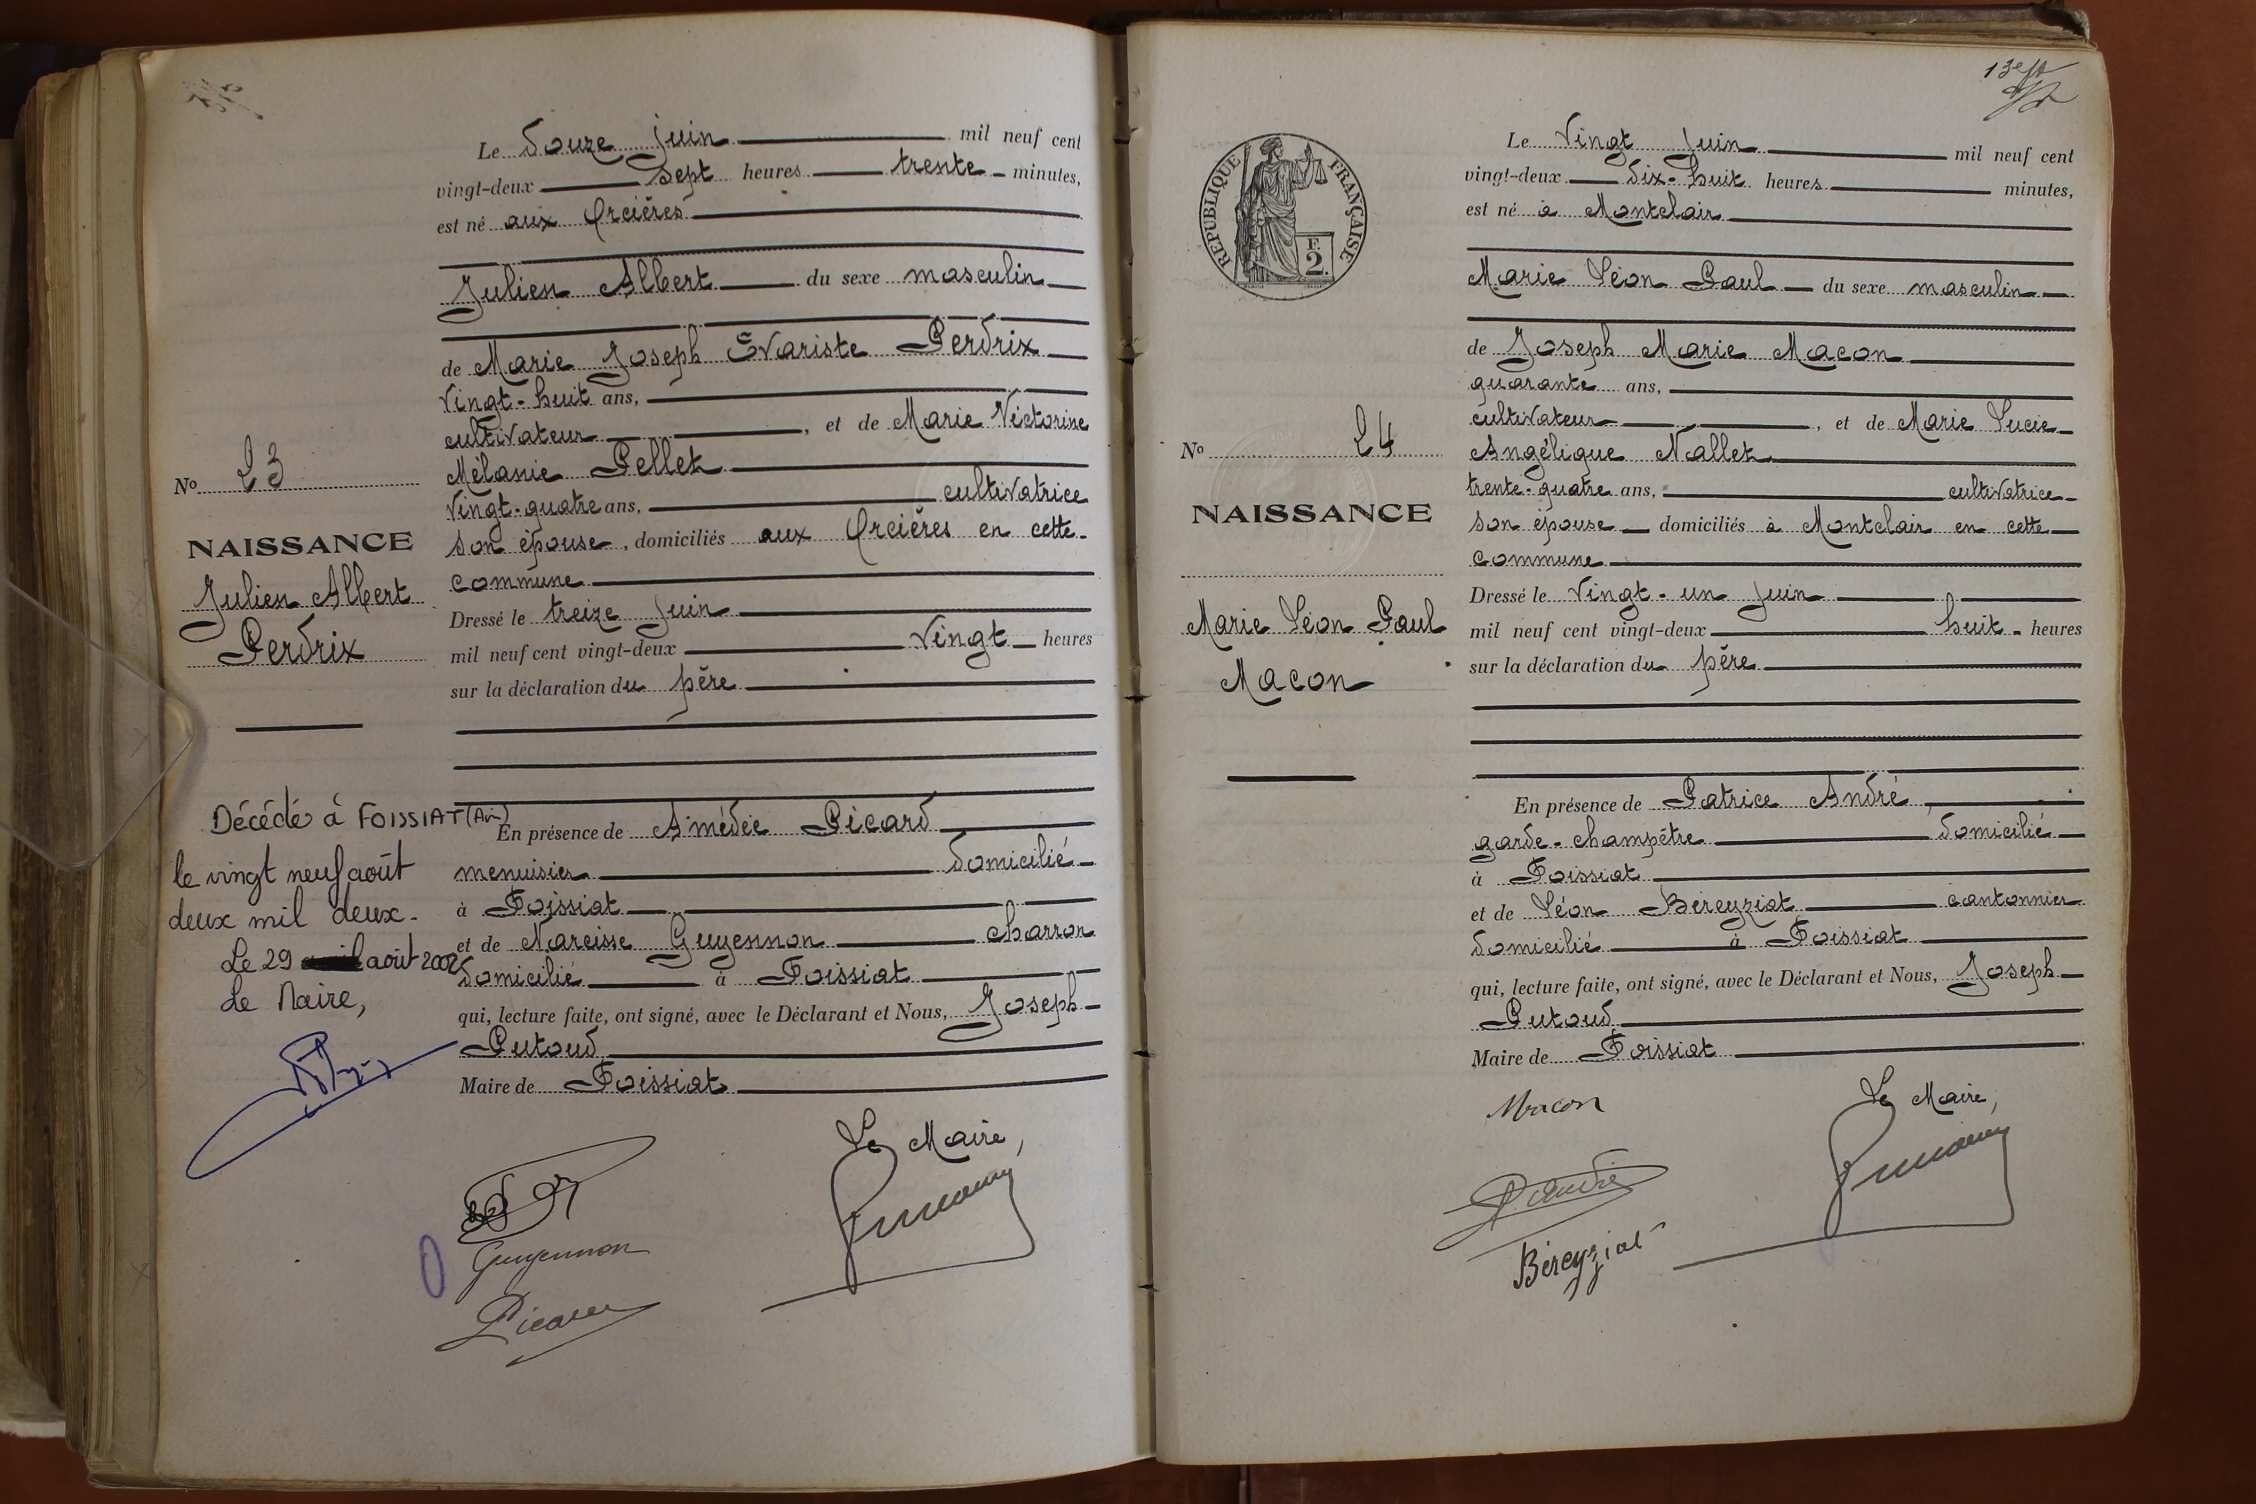 Le douze juin mil neuf cent
vingt-deux sept heures trente minutes,
est né aux Orcières
Julien Albert du sexe masculin
de Marie Joseph Evariste Perdrix
vingt-huit ans,
cultivateur, et de Marie Victorine
Mélanie Pellet
vingt-quatre ans, cultivatrice
son épouse, domiciliés aux Orcières en cette
commune
Dressé le treize juin
mil neuf cent vingt-deux vingt heures
sur la déclaration du père
En présence de Amédée Picard
menuisier domicilié
à Foissiat
et de Narcisse Guyennon charron
domicilié à Foissiat
qui, lecture faite, ont signé, avec le Déclarant et Nous, Joseph
Putoud
Maire de Foissiat
Le Maire,
Guyennon
Picard
No 23
NAISSANCE
Julien Albert
Perdrix
Décédé à FOISSIAT (Ain)
le vingt neuf août
deux mil deux.
Le 29 août 2002
Le Maire,
RÉPUBLIQUE FRANÇAISE
F.
2.
Le vingt juin mil neuf cent
vingt-deux dix-huit heures minutes,
est né à Montclair
Marie Léon Paul du sexe masculin
de Joseph Marie Macon
quarante ans,
cultivateur, et de Marie Lucie
Angélique Nallet
trente-quatre ans, cultivatrice
son épouse domiciliés à Montclair en cette
commune
Dressé le vingt-un juin
mil neuf cent vingt-deux huit heures
sur la déclaration du père
En présence de Patrice André,
garde-champêtre domicilié
à Foissiat
et de Léon Béreyziat cantonnier
domicilié à Foissiat
qui, lecture faite, ont signé, avec le Déclarant et Nous, Joseph
Putoud
Maire de Foissiat
Macon
Le Maire,
P. André
Béreyziat
No 24
NAISSANCE
Marie Léon Paul
Macon